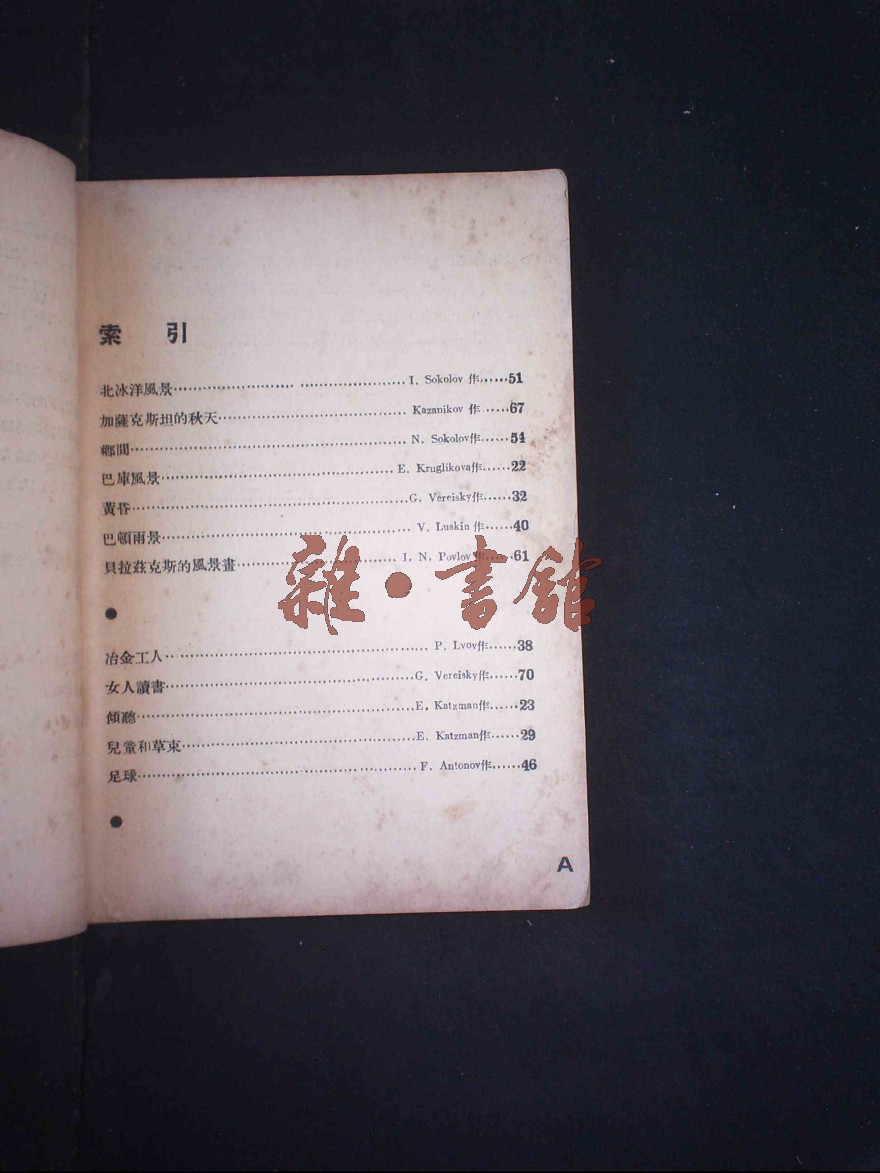 索 引
北冰洋風景 I. Sokolov 作 51
加薩克斯坦的秋天 Kazanikov 作 67
鄉間 N. Sokolov作 54
巴庫風景 E. Kruglikova作 22
黃昏 G. Vereisky作 32
巴頓雨景 V. Luskin 作 40
貝拉茲克斯的風景畫 I. N. Povlov 作 61
雜·書館
●
冶金工人 P. Lvov作 38
女人讀書 G. Vereisky作 70
傾聽 E. Katzman作 23
兒童和草束 E. Katzman作 29
足球 F. Antonov作 46
●
A